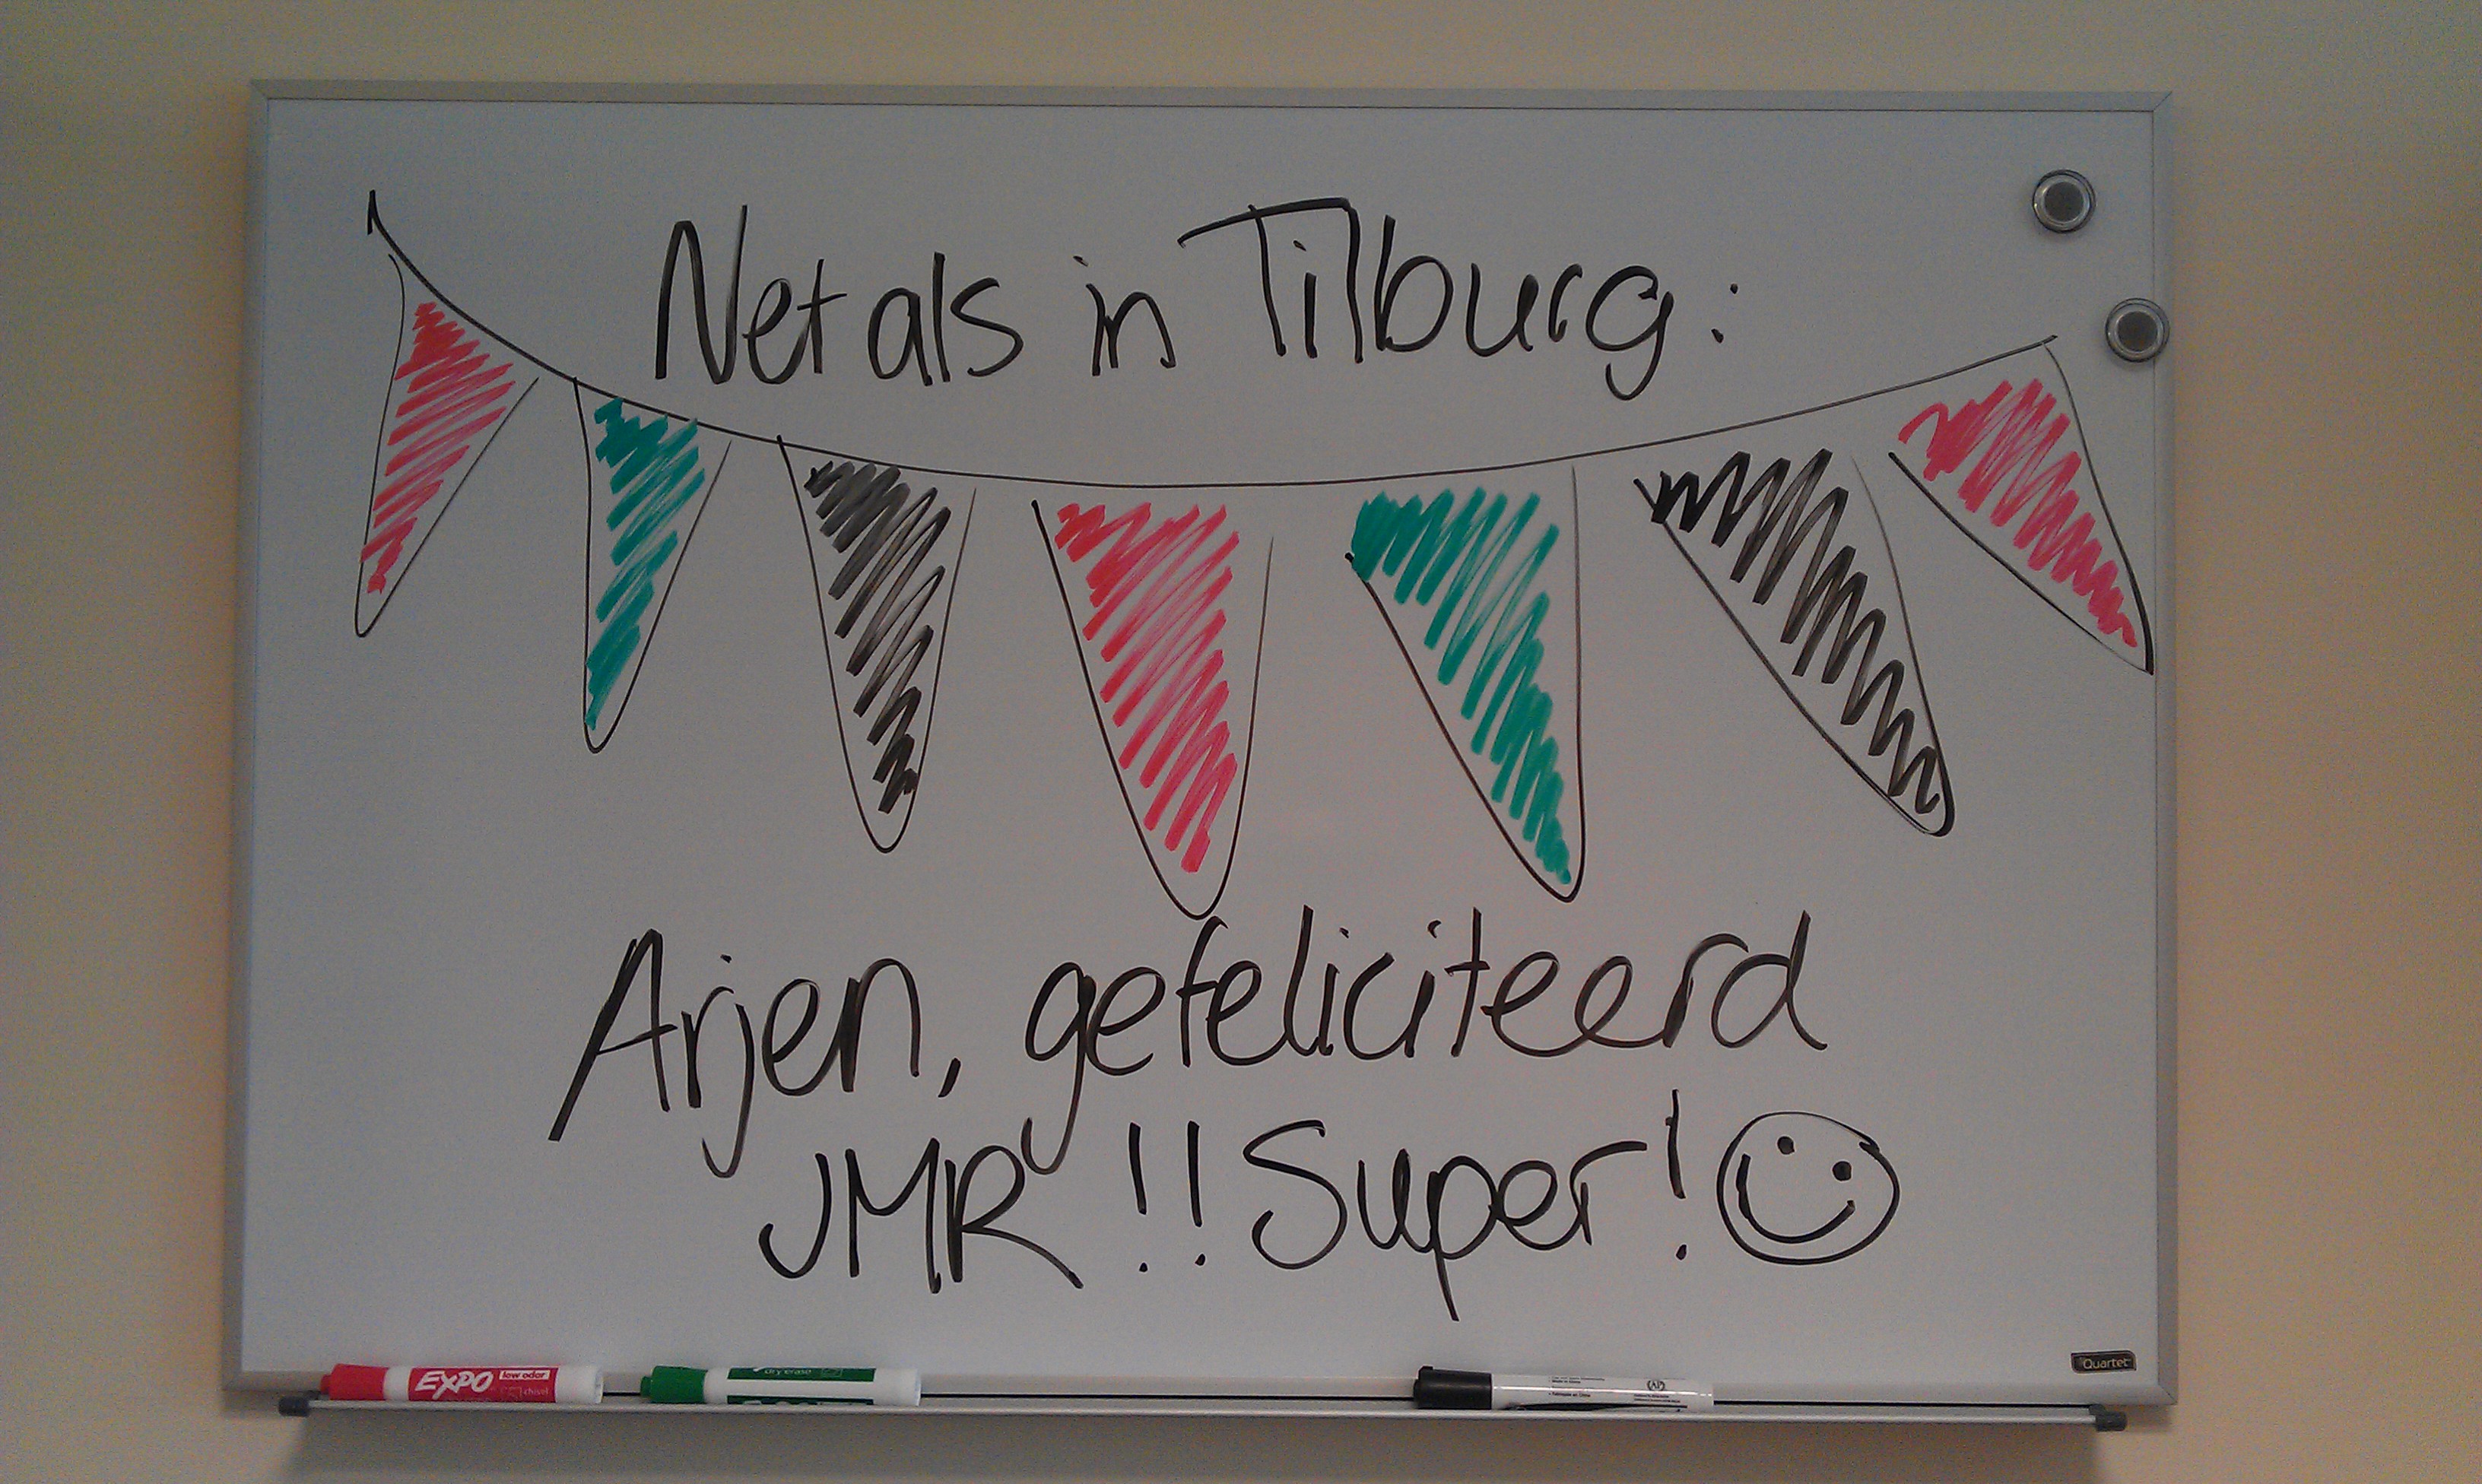 Net als in Tilburg:
Arjen, gefeliciteerd
JMR!! Super!
Quartet
EXPO
low odor
chisel
dry erase